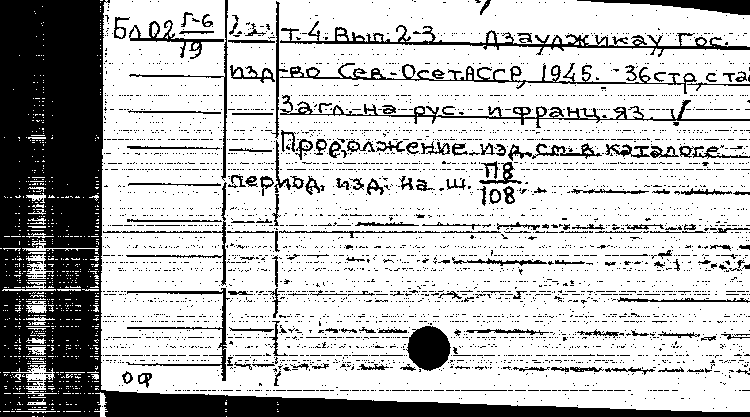 Бл 02 Г-6/19 2 экз. Т. 4. Вып. 2-3. Дзауджикау, Гос.
изд-во Сев-Осет.АССР, 1945. 36 стр, с
Загл. на рус. и франц. яз. √
Продолжение изд. см. в каталоге
период. изд. на ш. П8/108
ОФ